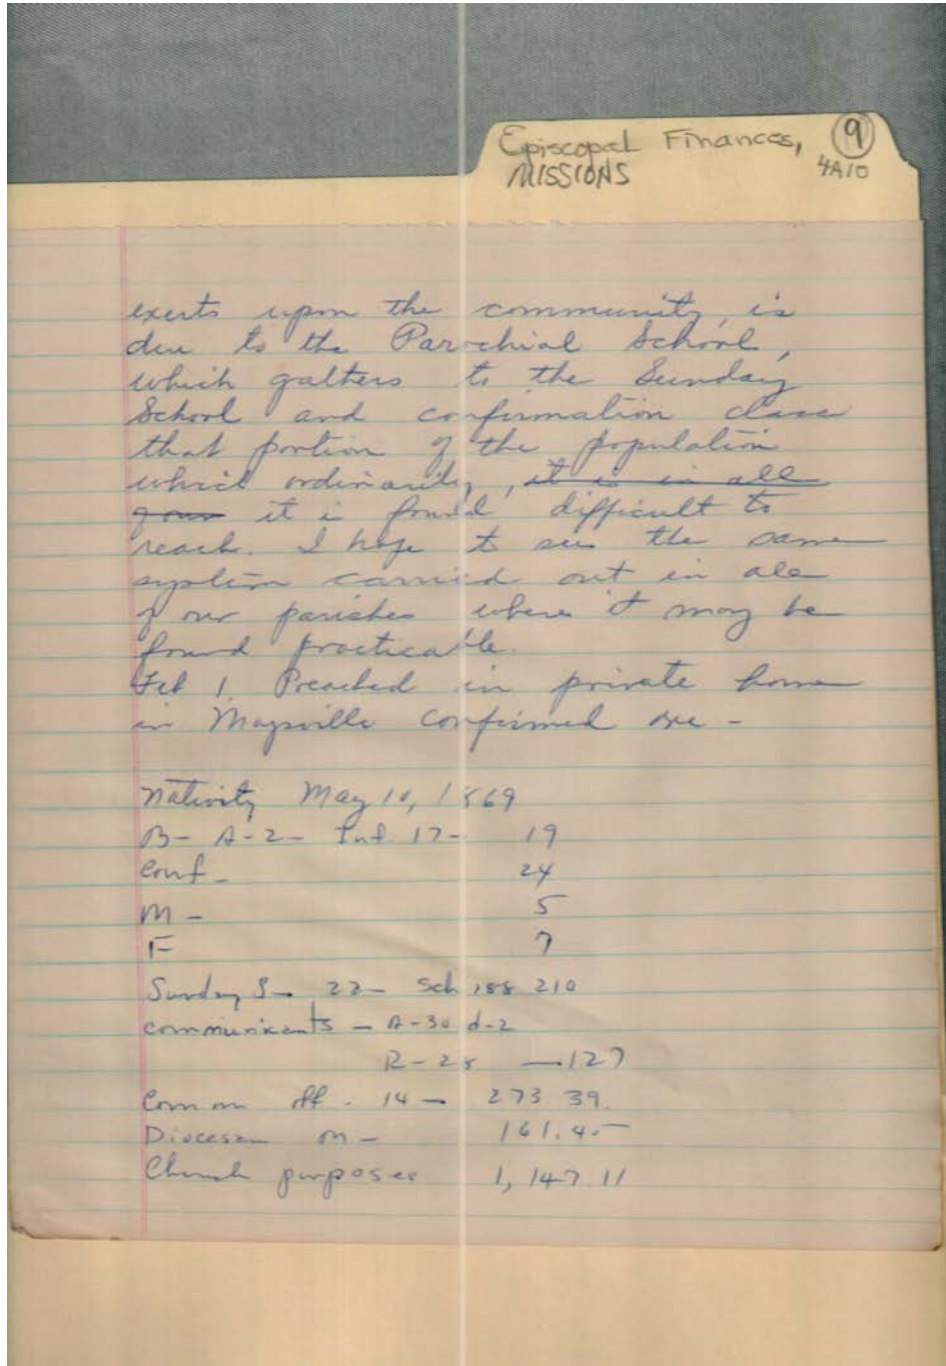 Episcopal Finances, 9
MISSIONS 4A10
exerts upon the community, is
due to the Parochial School,
which gathers to the Sunday
School and confirmation class
that portion of the population
which ordinarily, it is in all
it is found difficult to
reach. I hope to see the same
system carried out in all
of our parishes where it may be
found practicable.
Feb 1 Preached in private home
in Maysville confirmed one -
Nativity May 10, 1869
B- A-2- Inf. 17- 19
Conf- 24
M - 5
F 7
Sunday S- 22- Sch 188 210
communicants - A-30 d-2
R-28 -127
Com on off. 14 - 273.39.
Diocesan m - 161.45
Church purposes 1,147 11